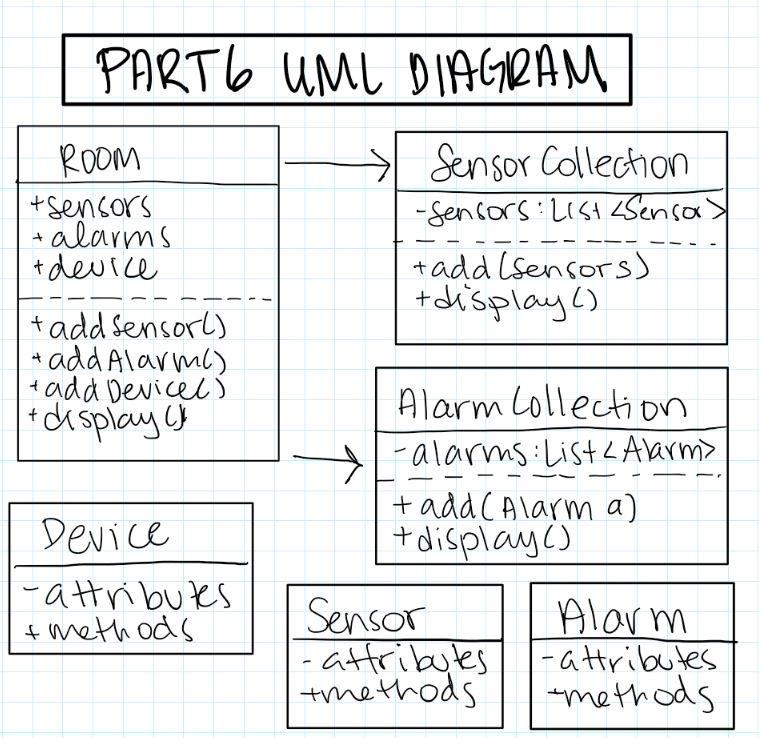 PART6 UML DIAGRAM
ROOM
+sensors
+alarms
+device
+addSensor()
+addAlarm()
+addDevice()
+display()
Sensor Collection
-sensors:List<Sensor>
+add(Sensors)
+display()
Alarm Collection
-alarms:List<Alarm>
+add(Alarm a)
+display()
Device
-attributes
+methods
Sensor
-attributes
+methods
Alarm
-attributes
+methods